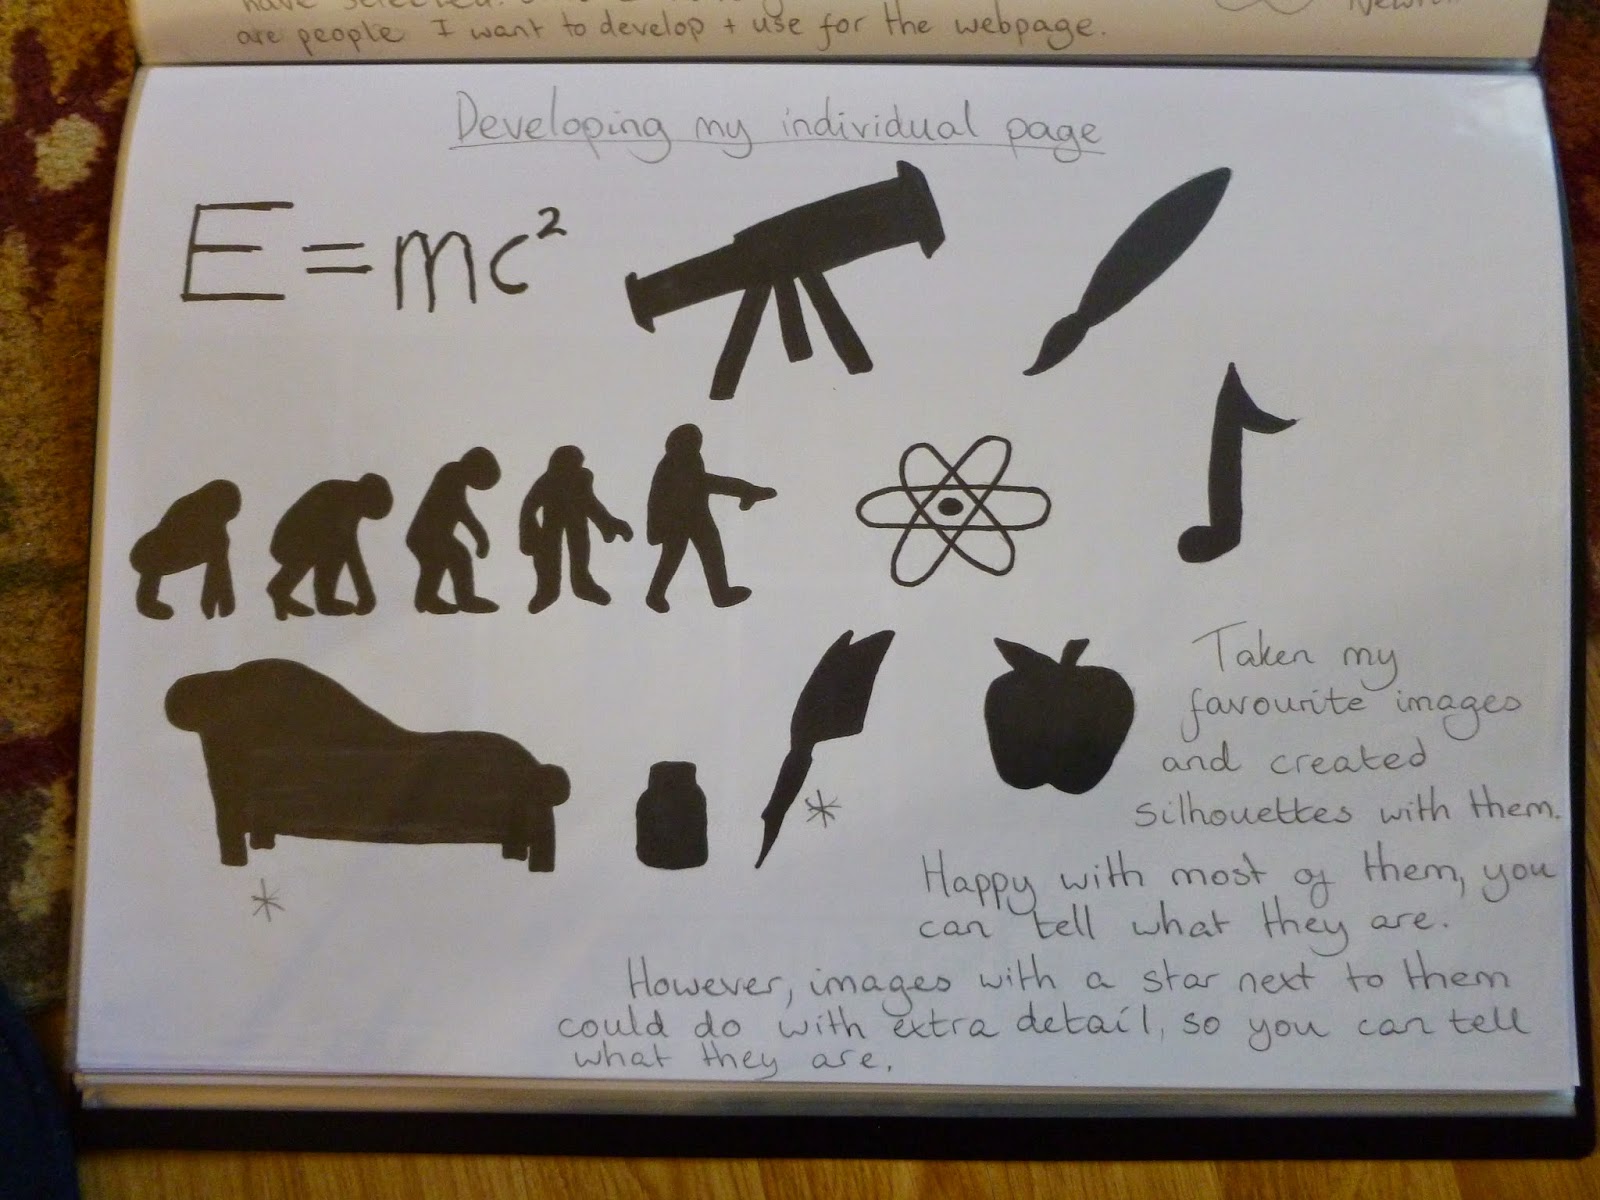 have selected.
Newton
are people I want to develop + use for the webpage.
Developing my individual page
E = mc²
Taken my
favourite images
and created
silhouettes with them.
Happy with most of them, you
can tell what they are.
However, images with a star next to them
could do with extra detail, so you can tell
what they are.